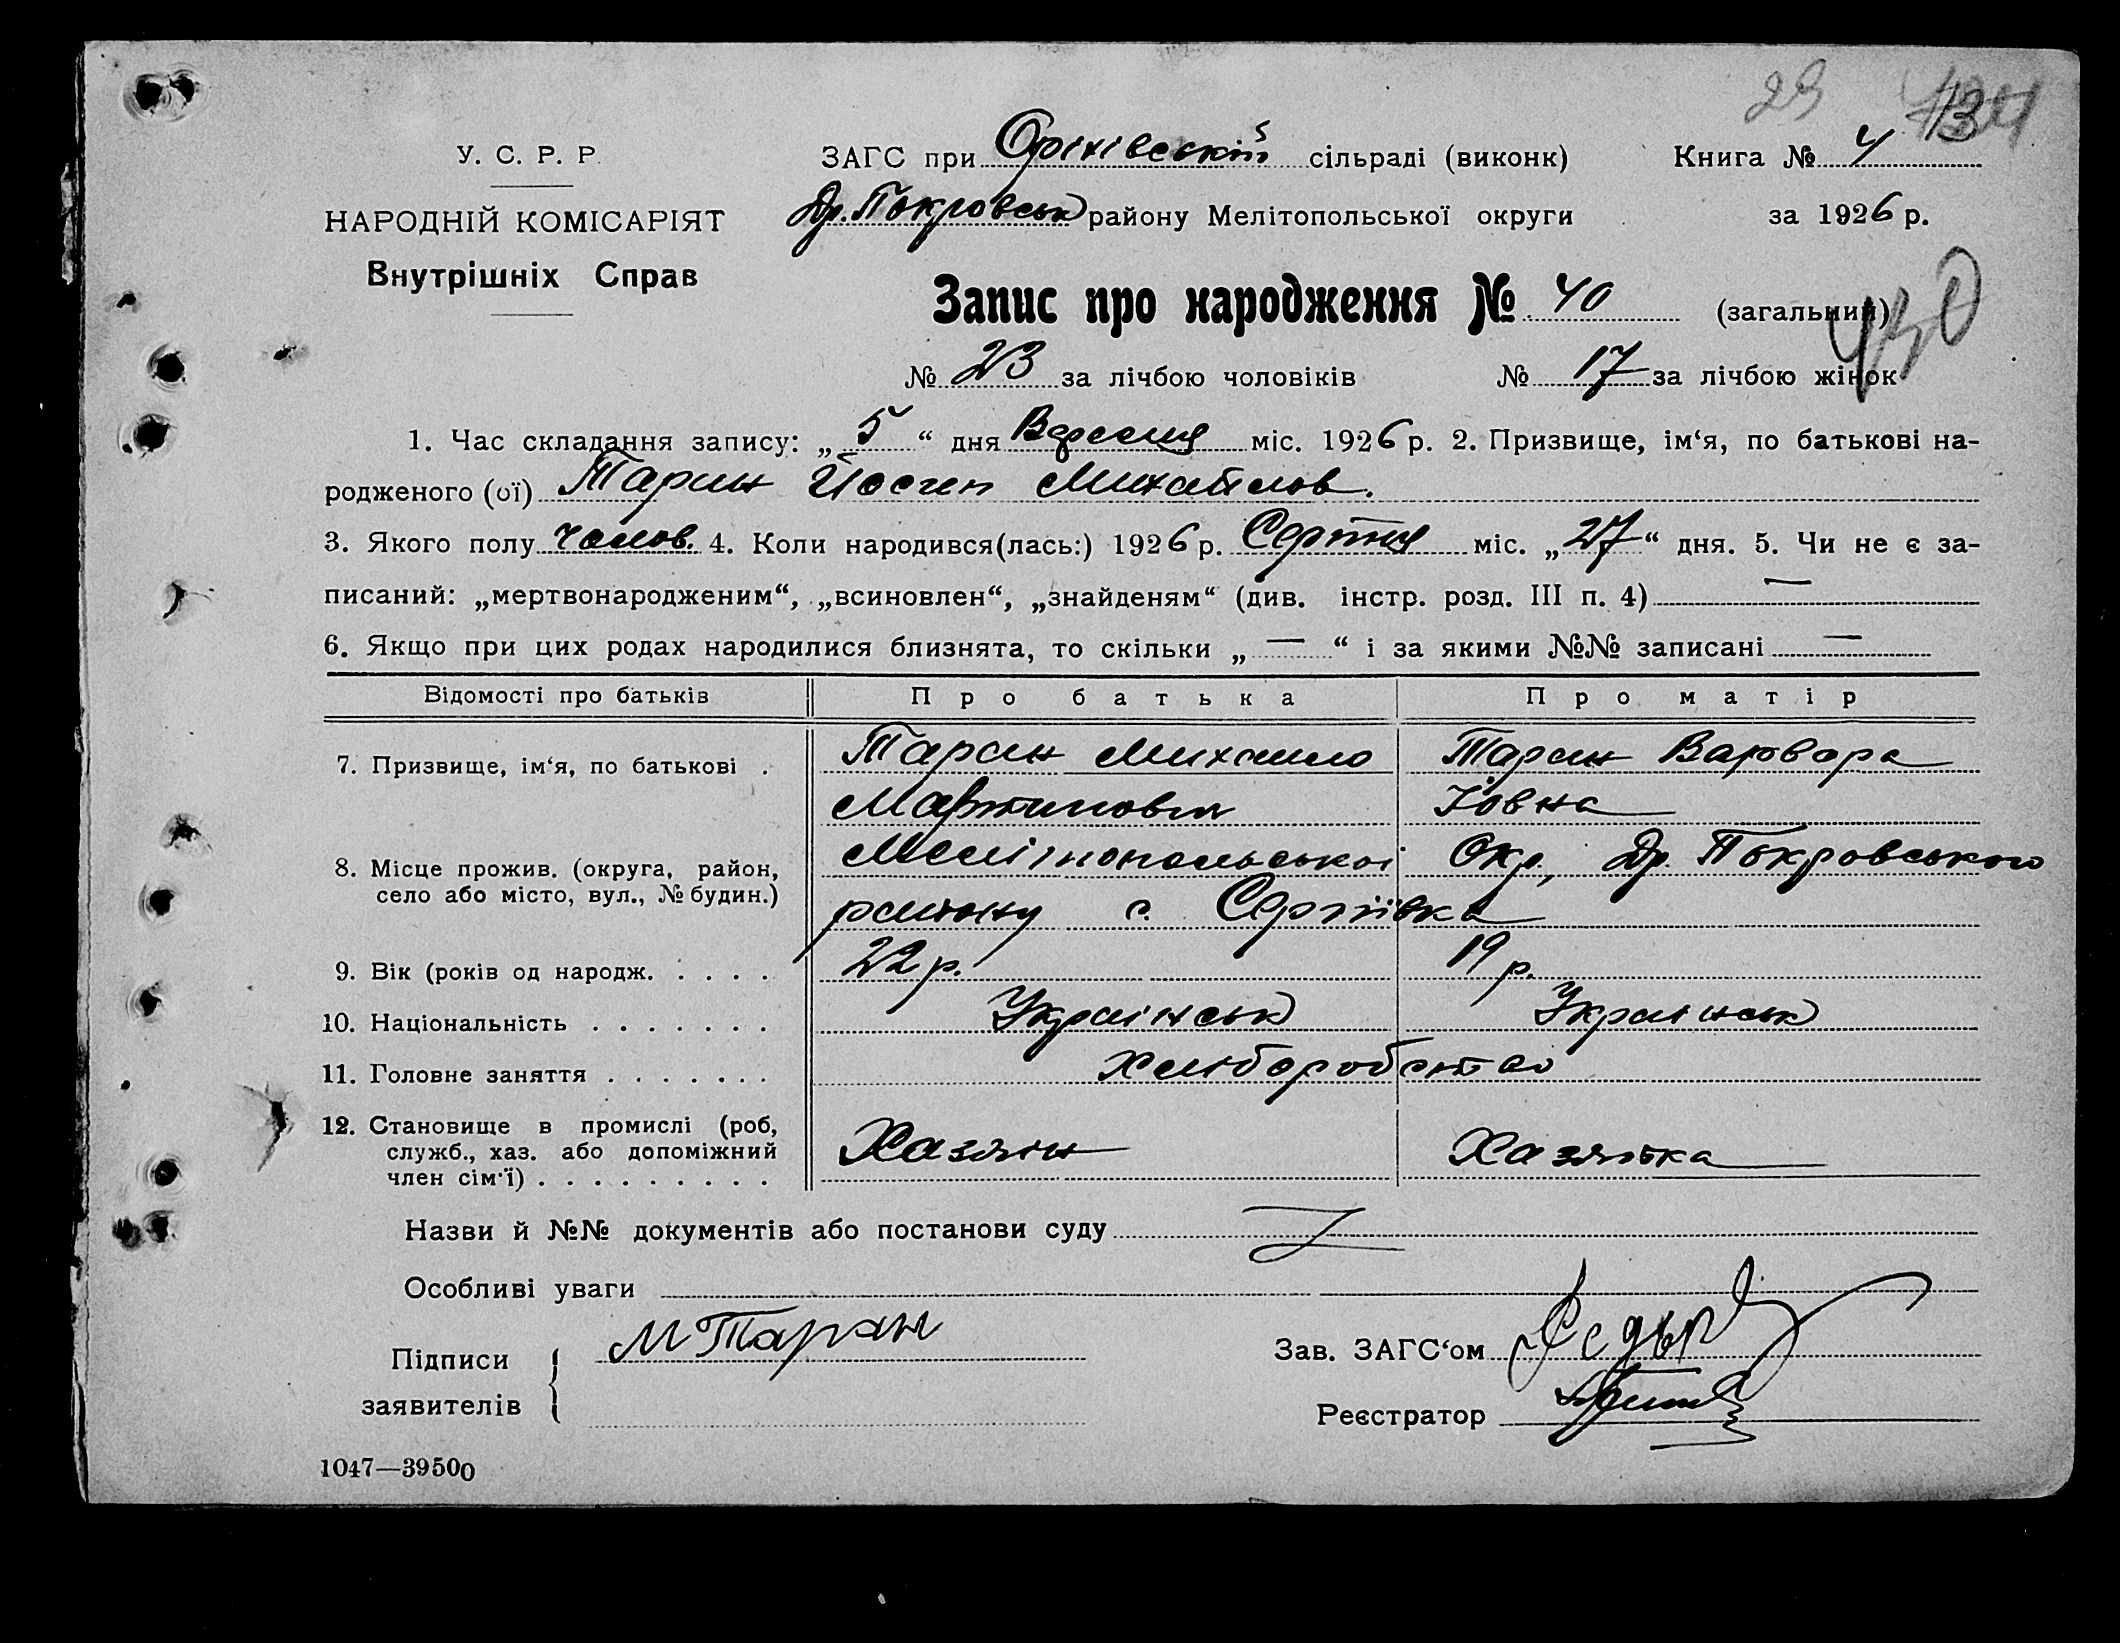 29 434
У. С. Р. Р.
ЗАГС при Оріхівській сільраді (виконк) Книга № 4
НАРОДНІЙ КОМІСАРІЯТ
Др. Покровськ району Мелітопольської округи за 1926 р.
Внутрішніх Справ
Запис про народження № 40 (загальний)
430
№ 23 за лічбою чоловіків № 17 за лічбою жінок
1. Час складання запису: „ 5 “ дня Вересня міс. 1926 р. 2. Призвище, ім‘я, по батькові на-
родженого (ої) Таран Йосип Михайлов.
3. Якого полу чолов. 4. Коли народився(лась:) 1926 р. Серпня міс. „ 27 “ дня. 5. Чи не є за-
писаний: „мертвонародженим“, „всиновлен“, „знайденям“ (див. інстр. розд. III п. 4) —
6. Якщо при цих родах народилися близнята, то скільки „ — “ і за якими №№ записані —
Відомості про батьків Про батька Про матір
7. Призвище, ім‘я, по батькові . Таран Михайло Таран Варвара
Мартинович Іовна
8. Місце прожив. (округа, район, Мелітопольської Окр., Др. Покровського
село або місто, вул., № будин.) району с. Сергіївка
9. Вік (років од народж. . . . . 22 р. 19 р.
10. Національність . . . . . . . Українськ Українськ
11. Головне заняття . . . . . . . Хліборобство
12. Становище в промислі (роб,
служб., хаз. або допоміжний Хазяїн Хазяйка
член сім‘ї) . . . . . . . . .
Назви й №№ документів або постанови суду
Особливі уваги
Підписи М Таран Зав. ЗАГС‘ом
заявителів Реєстратор
1047—39500